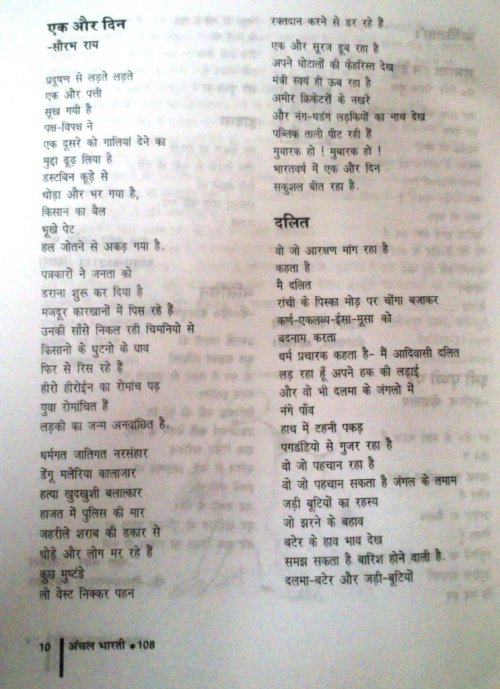 एक और दिन
-सौरभ राय
प्रदूषण से लड़ते लड़ते
एक और पत्ती
सूख गयी है
पक्ष-विपक्ष ने
एक दूसरे को गालियां देने का
मुद्दा ढूढ़ लिया है
डस्टबिन कूड़े से
थोड़ा और भर गया है,
किसान का बैल
भूखे पेट
हल जोतने से अकड़ गया है.
पत्रकारों ने जनता को
डराना शुरू कर दिया है
मजदूर कारखानों में पिस रहे हैं
उनकी साँसे निकल रही चिमनियो से
किसानो के घुटनो के घाव
फिर से रिस रहे हैं
हीरो हीरोईन का रोमांच पढ़
युवा रोमांचित हैं
लड़की का जन्म अनवांछित है.
धर्मगत जातिगत नरसंहार
डेंगू मलेरिया कालाजार
हत्या खुदखुशी बलात्कार
हाजत में पुलिस की मार
जहरीले शराब की डकार से
थोड़े और लोग मर रहे हैं
कुछ मुष्टंडे
लो वेस्ट निक्कर पहन
रक्तदान करने से डर रहे हैं.
एक और सूरज डूब रहा है
अपने घोटालों की फेहरिस्त देख
मंत्री स्वयं ही ऊब रहा है
अमीर क्रिकेटरों के नखरे
और नंग-धडंग लड़कियों का नाच देख
पब्लिक ताली पीट रही हैं
मुबारक हो ! मुबारक हो !
भारतवर्ष में एक और दिन
सकुशल बीत रहा है.
दलित
वो जो आरक्षण मांग रहा है
कहता है
मै दलित
रांची के पिस्का मोड़ पर चोंगा बजाकर
कर्ण-एकलव्य-ईसा-मूसा को
बदनाम करता
धर्म प्रचारक कहता है- मैं आदिवासी दलित
लड़ रहा हूँ अपने हक की लड़ाई
और वो भी दलमा के जंगलो में
नंगे पाँव
हाथ में टहनी पकड़
पगडंडियो से गुजर रहा है
वो जो पहचान रहा है
वो जो पहचान सकता है जंगल के तमाम
जड़ी बूटियों का रहस्य
जो झरने के बहाव
बटेर के हाव भाव देख
समझ सकता है बारिश होने वाली है.
दलमा-बटेर और जड़ी-बूटियों
10 अंचल भारती • 108